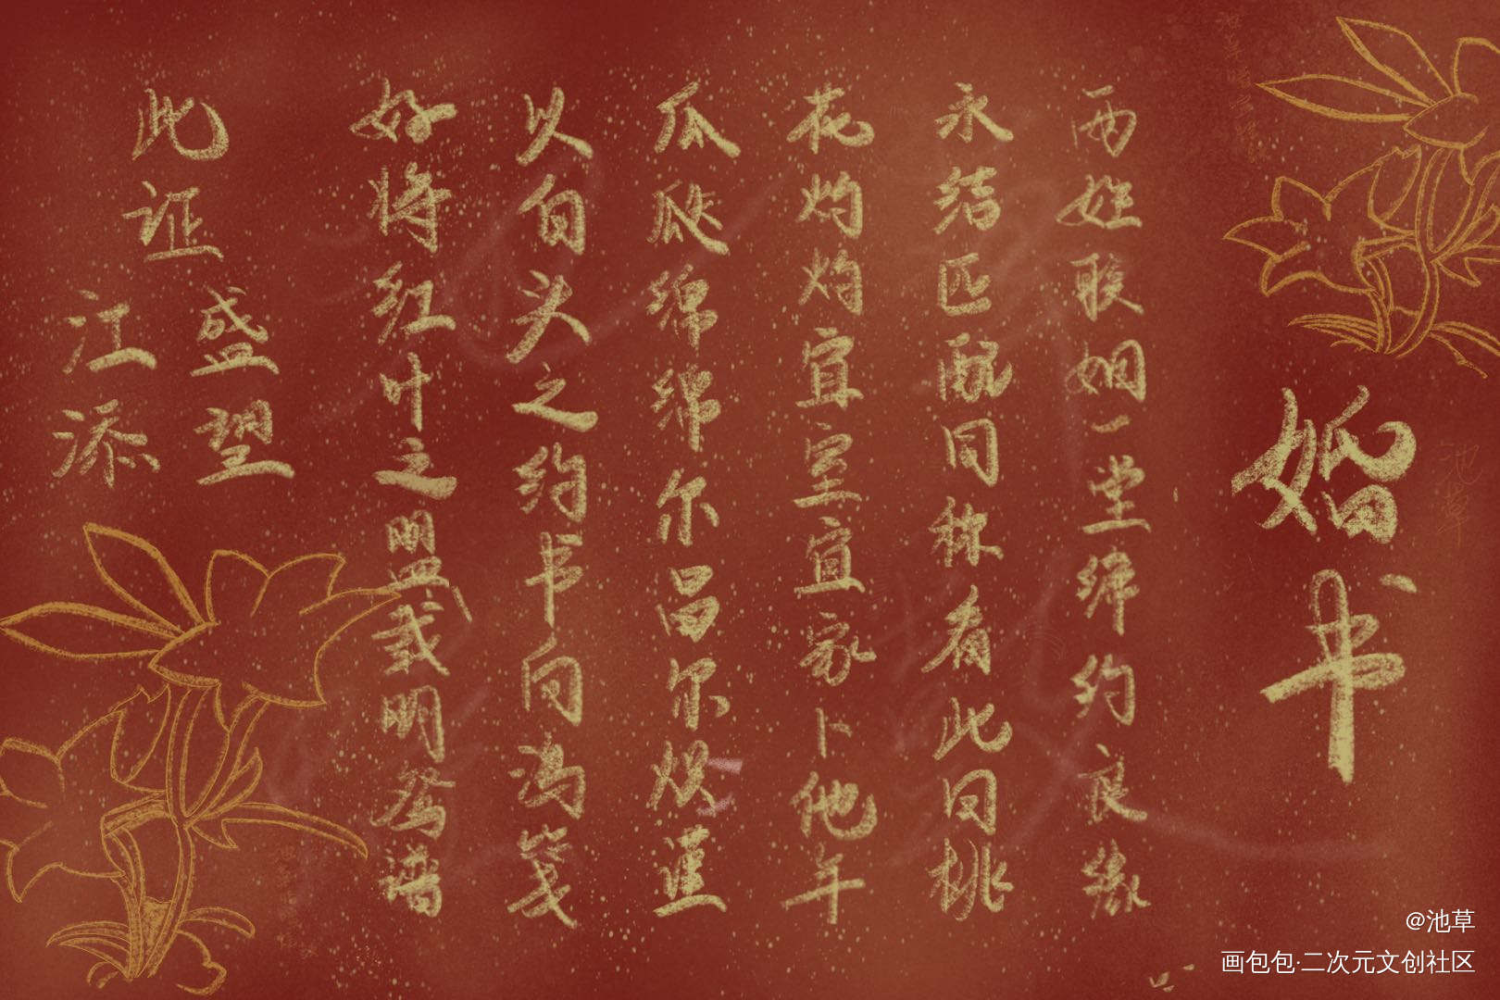 婚书
两姓联姻一堂缔约良缘
永结匹配同称看此日桃
花灼灼宜室宜家卜他年
瓜瓞绵绵尔昌尔炽谨
以白头之约书向鸿笺
好将红叶之盟载明鸳谱
此证
盛望
江添
池草
@池草
画包包·二次元文创社区